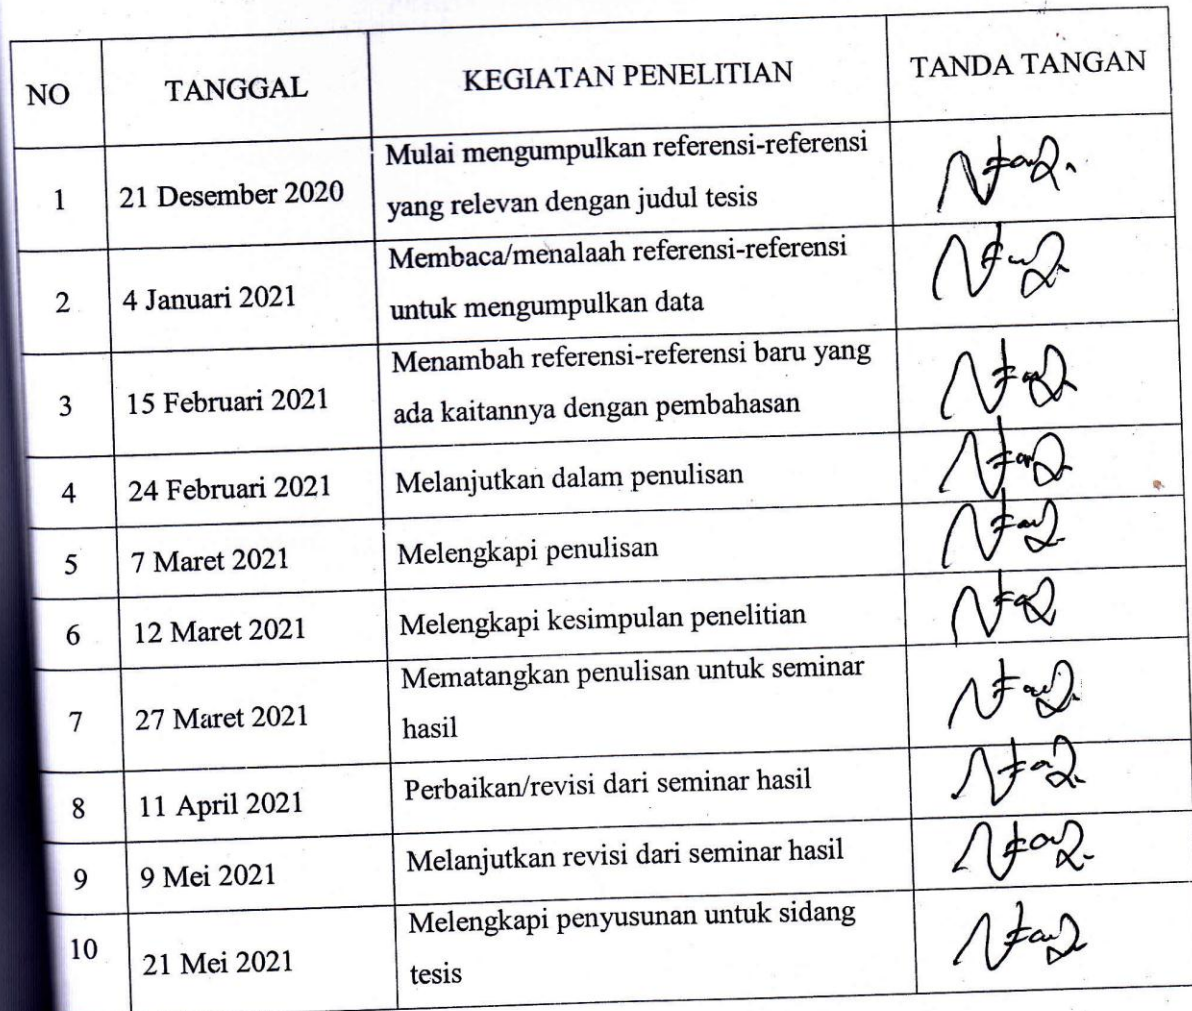 NO TANGGAL KEGIATAN PENELITIAN TANDA TANGAN
1 21 Desember 2020 Mulai mengumpulkan referensi-referensi
yang relevan dengan judul tesis
2 4 Januari 2021 Membaca/menalaah referensi-referensi
untuk mengumpulkan data
3 15 Februari 2021 Menambah referensi-referensi baru yang
ada kaitannya dengan pembahasan
4 24 Februari 2021 Melanjutkan dalam penulisan
5 7 Maret 2021 Melengkapi penulisan
6 12 Maret 2021 Melengkapi kesimpulan penelitian
7 27 Maret 2021 Mematangkan penulisan untuk seminar
hasil
8 11 April 2021 Perbaikan/revisi dari seminar hasil
9 9 Mei 2021 Melanjutkan revisi dari seminar hasil
10 21 Mei 2021 Melengkapi penyusunan untuk sidang
tesis